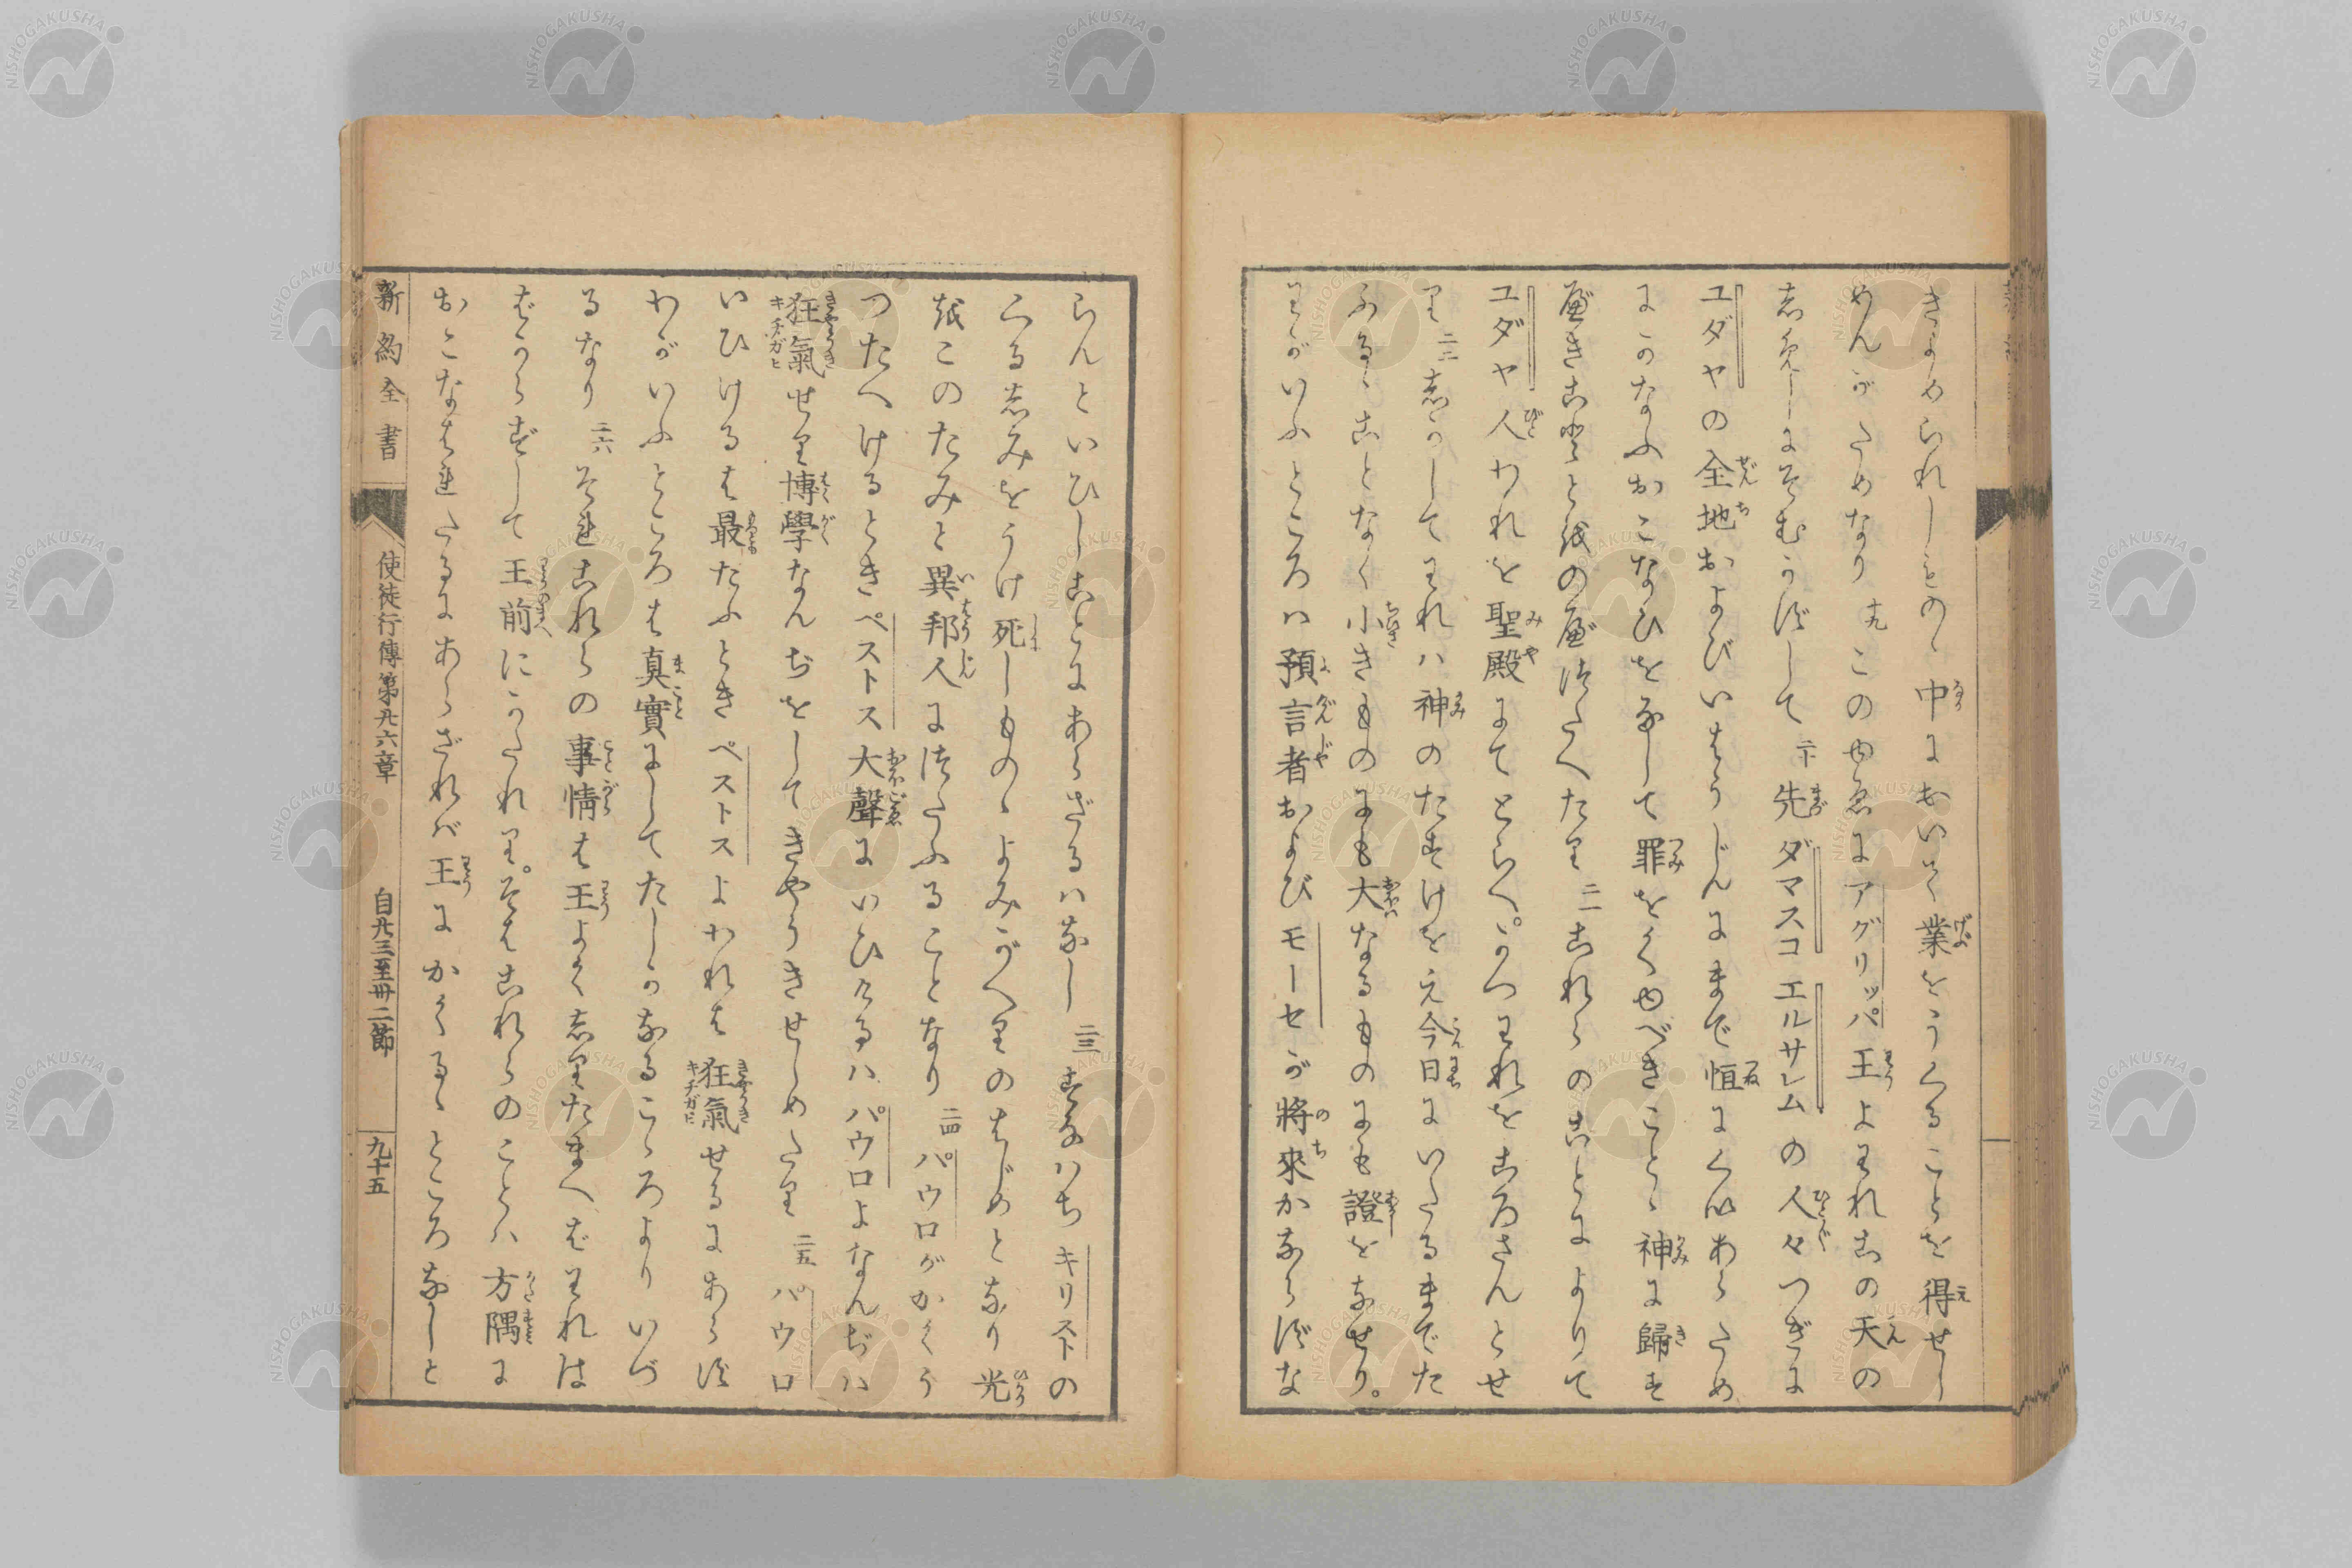 きよめられしものゝ中において業をうくることを得せし
めんがためなり 十九 このゆゑにアグリッパ王よわれこの天の
志めしにそむかずして 二十 先ダマスコ エルサレムの人々つぎに
ユダヤの全地およびいはうじんにまで恒にくいあらため
にかなふおこなひをなして罪をくゆべきことゝ神に歸す
べきことをのべつたへたり 二一 これらのことによりて
ユダヤ人われを聖殿にてとらへ。かつわれをころさんとせ
り 二二 志かしてわれハ神のたすけをえ今日にいたるまでた
ふるゝことなく小きものにも大なるものにも證をなせり。
わがいふところハ預言者およびモーセが將來かならずな
らんといひしことにあらざるハなし 二三 すなハちキリストの
くるしみをうけ死しものゝよみがへりのはじめとなり光
をこのたみと異邦人につたふることなり 二四 パウロがかくう
つたへけるときペストス大聲にいひけるハパウロよなんぢハ
狂氣せり博學なんぢをしてきやうきせしめたり 二五 パウロ
いひけるは最たふときペストスよわれは狂氣せるにあらず
わがいふところは真實にしてたしかなるこゝろよりいづ
るなり 二六 それこれらの事情は王よく志りたまへばわれは
ばからずして王前にかたれり。そはこれらのことハ方隅に
おこなはれたるにあらざれバ王にかくるゝところなしと
新約全書
使徒行傳第廾六章
自廾三至卅二節
九十五
NISHOGAKUSHA